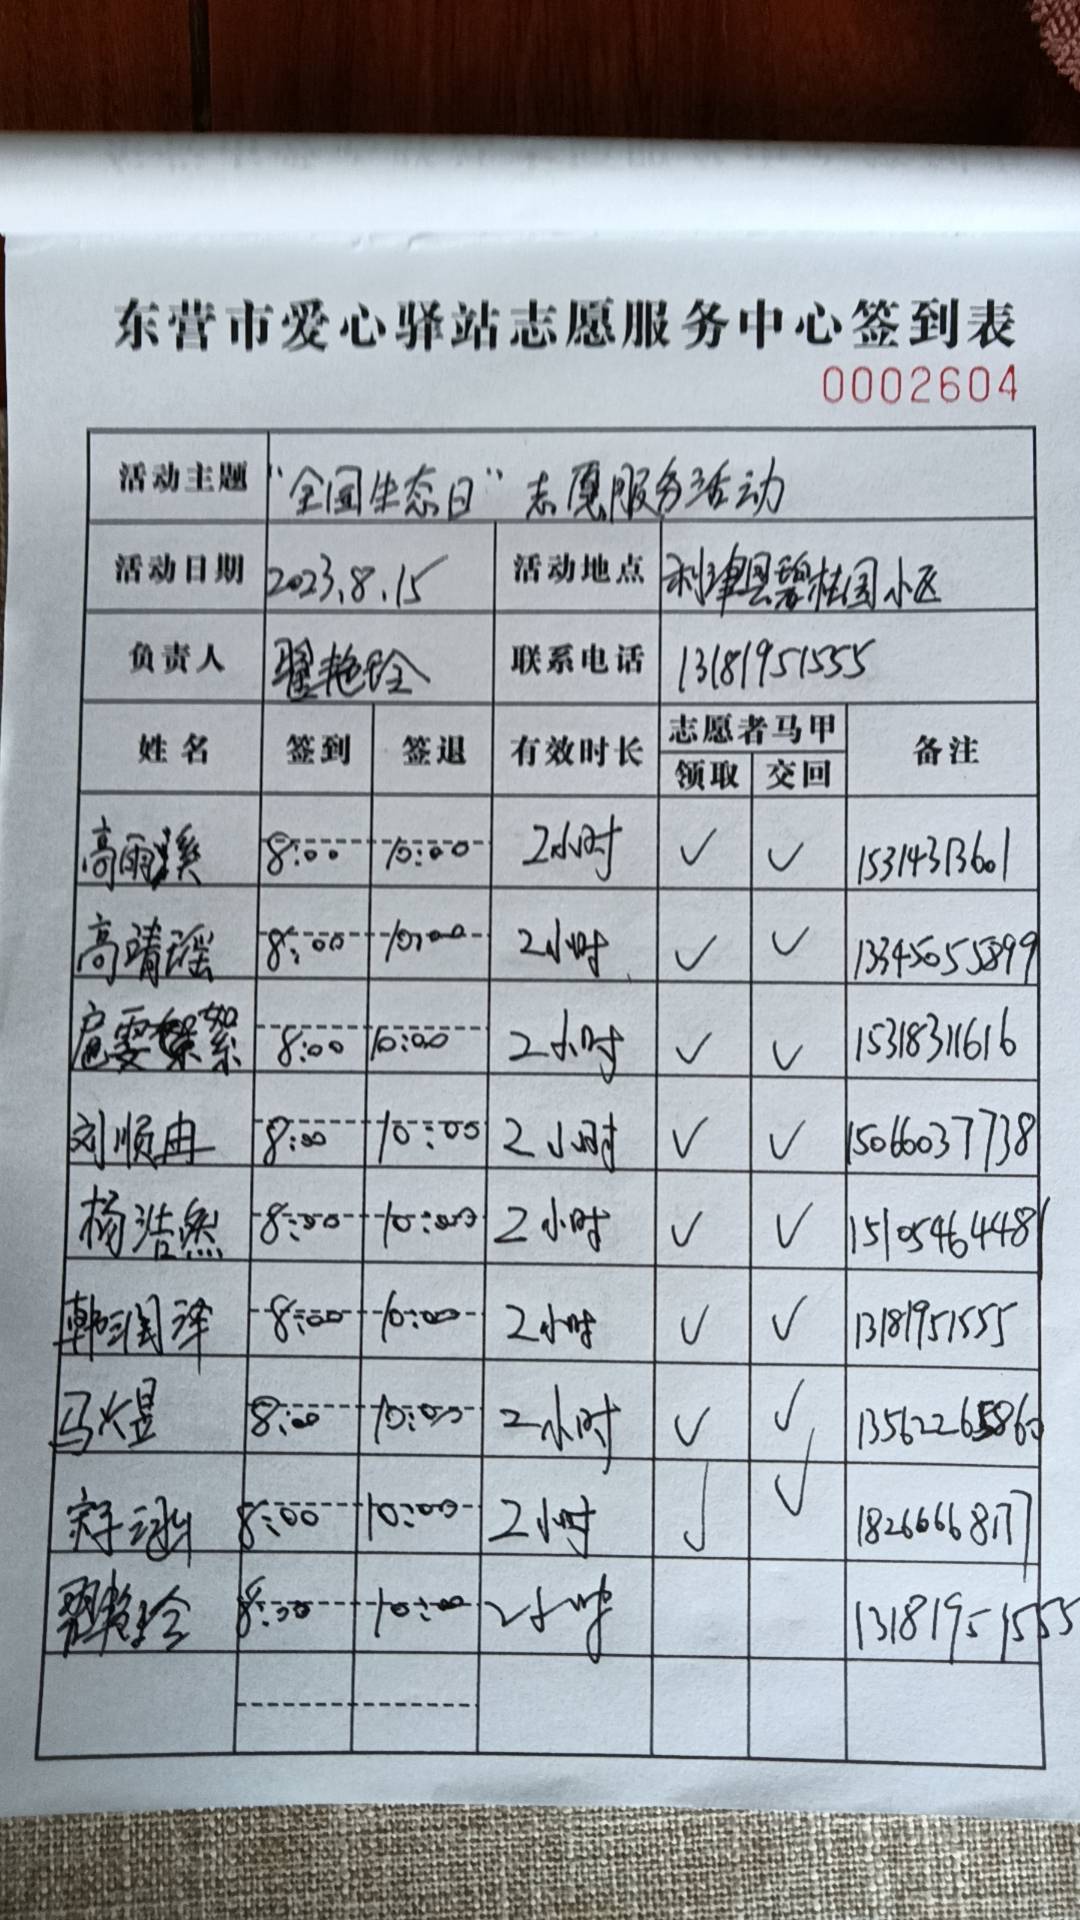 东营市爱心驿站志愿服务中心签到表
0002604
活动主题 “全国生态日”志愿服务活动
活动日期 2023.8.15 活动地点 利津县碧桂园小区
负责人 翟艳玲 联系电话 13181951555
姓名 签到 签退 有效时长 志愿者马甲 备注
领取 交回
高雨溪 8:00 10:00 2小时 ✓ ✓ 15314313601
高靖谣 8:00 10:00 2小时 ✓ ✓ 13345055899
扈雯絮 8:00 10:00 2小时 ✓ ✓ 15318311616
刘顺冉 8:00 10:00 2小时 ✓ ✓ 15066037738
杨浩然 8:00 10:00 2小时 ✓ ✓ 15105464481
韩润泽 8:00 10:00 2小时 ✓ ✓ 13181951555
马煜 8:00 10:00 2小时 ✓ ✓ 13562265860
8:00 10:00 2小时 ✓ ✓
翟艳玲 8:00 10:00 2小时 13181951555